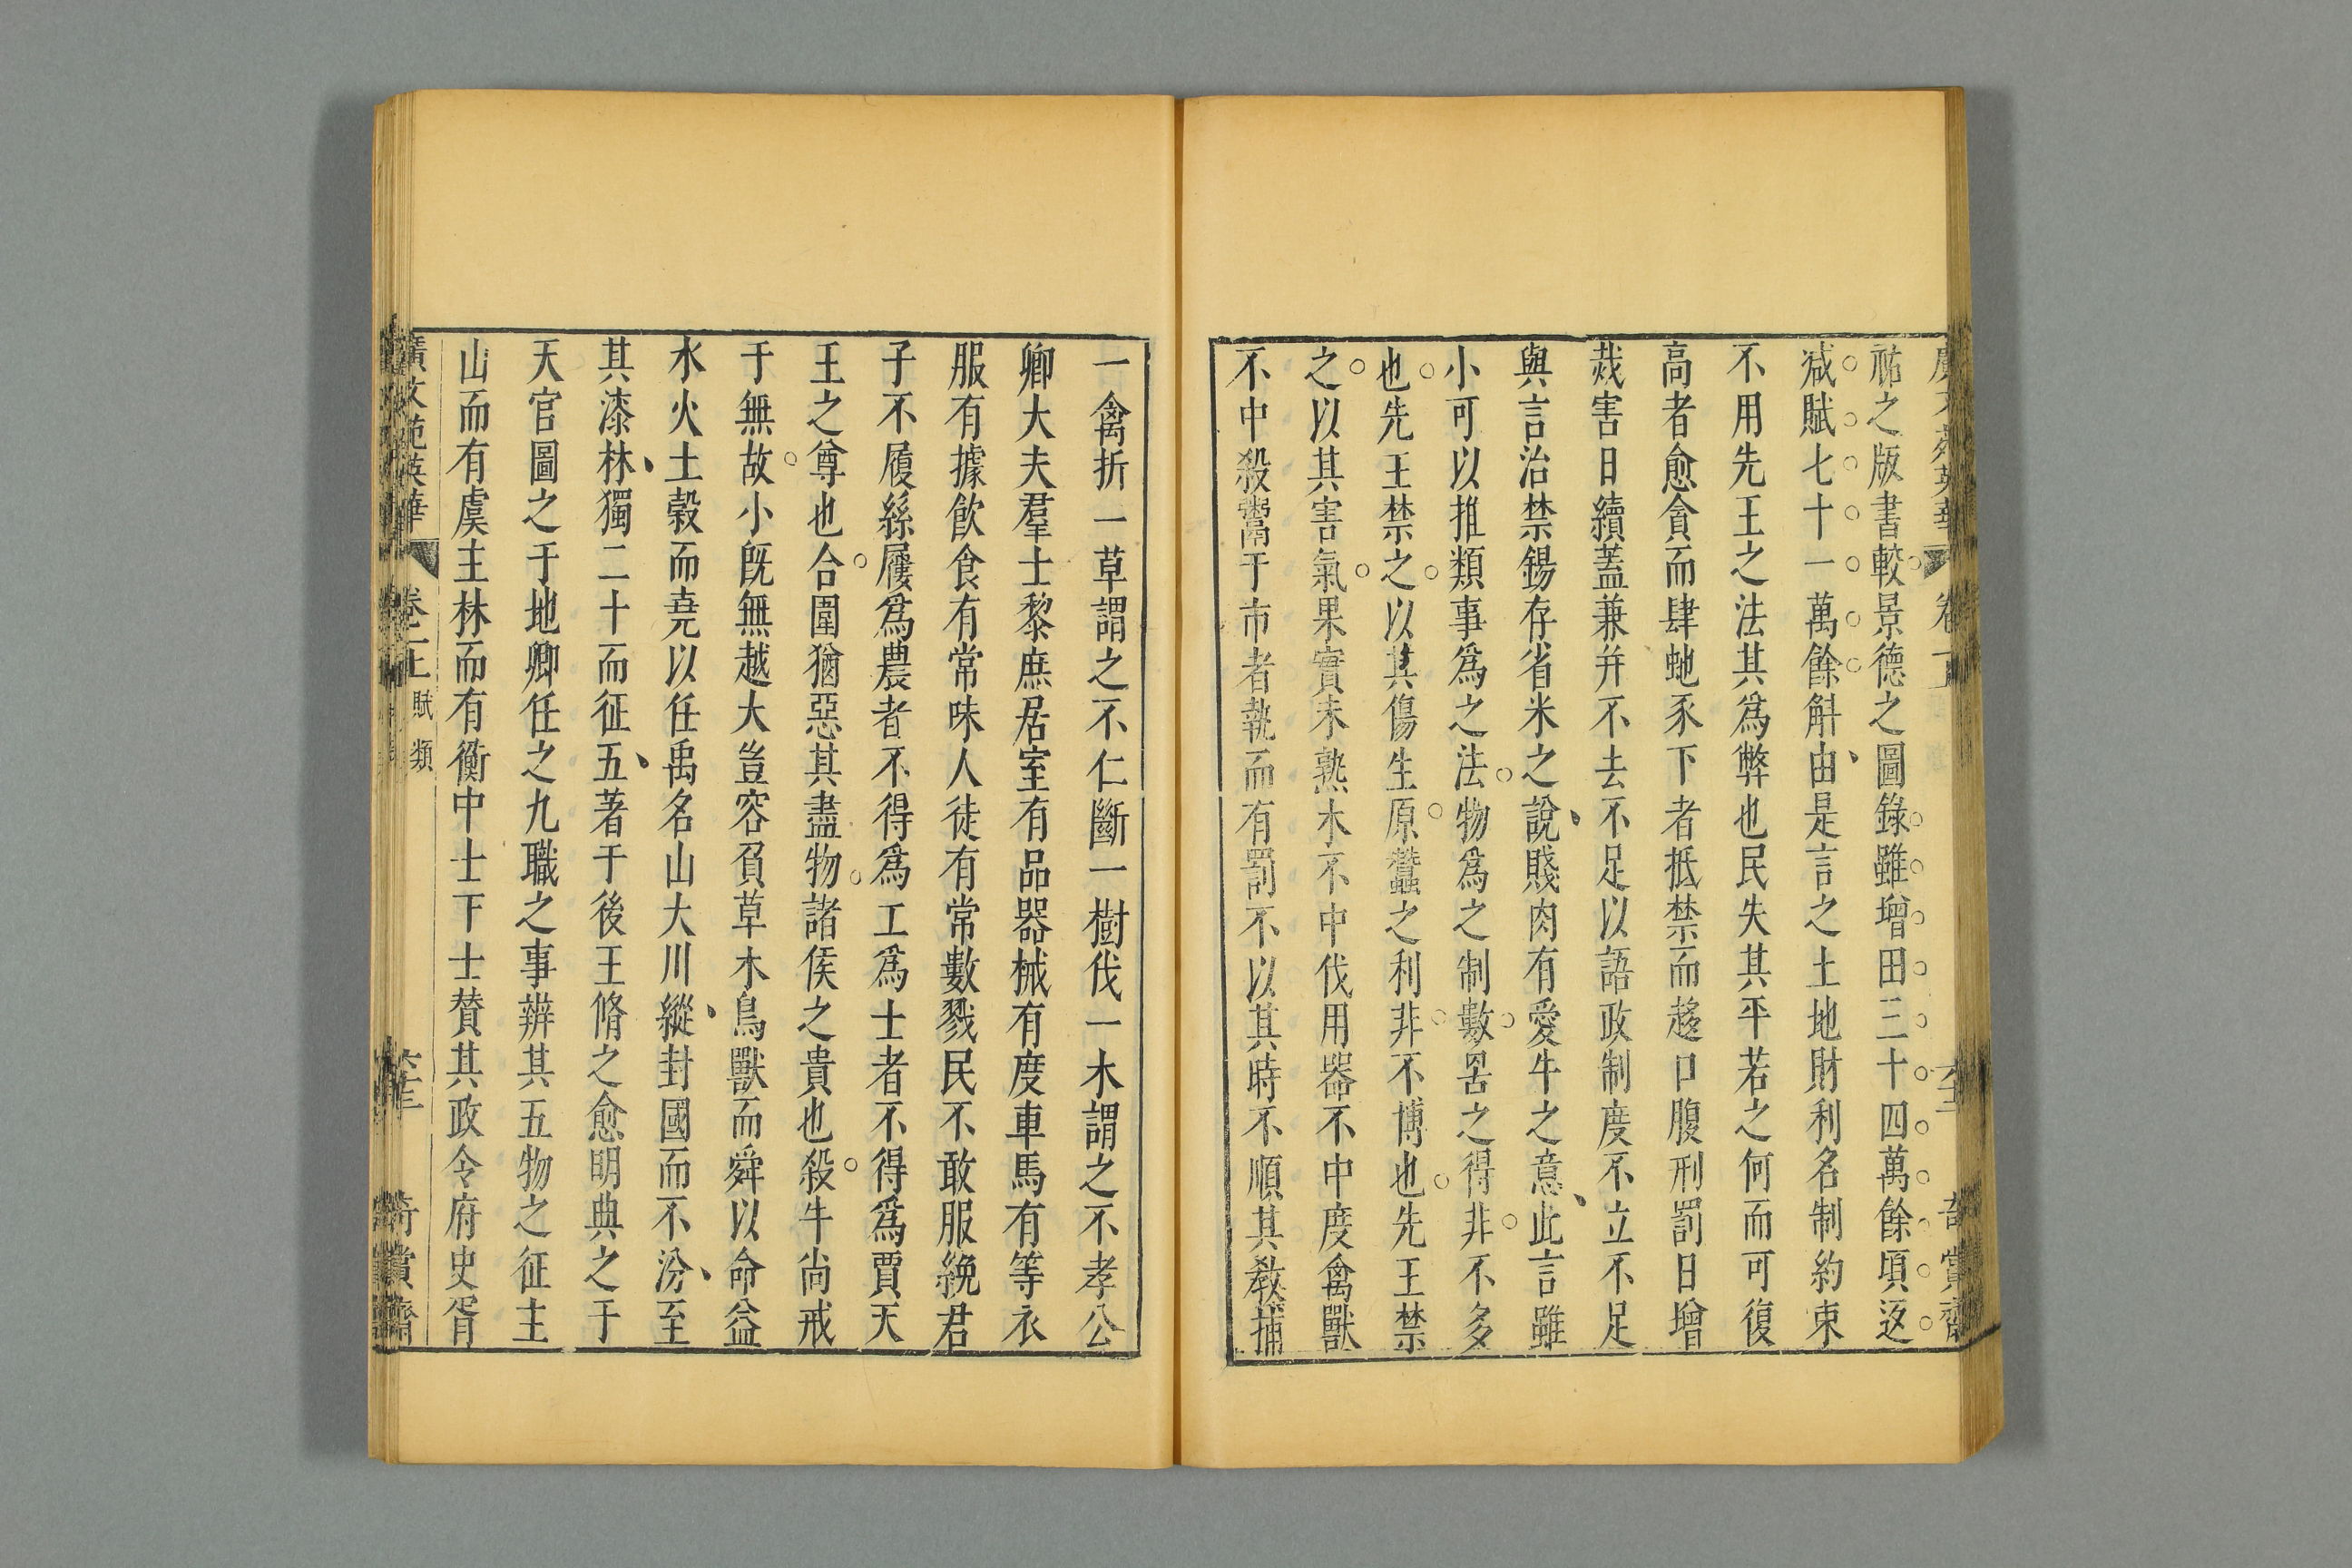 祐之版書較景德之圖錄雖增田三十四萬餘頃返
減賦七十一萬餘斛由是言之土地財利名制約束
不用先王之法其為弊也民失其平若之何而可復
高者愈貪而肆虵豕下者抵禁而趍口腹刑罰日增
烖害日續蓋兼并不去不足以語政制度不立不足
與言治禁錫存省米之說賤肉有愛牛之意此言雖
小可以推類事爲之法物爲之制數罟之得非不多
也先王禁之以其傷生原蠶之利非不博也先王禁
之以其害氣果實未熟木不中伐用器不中度禽獸
不中殺鬻于市者執而有罰不以其時不順其敎捕
一禽折一草謂之不仁斷一樹伐一木謂之不孝公
卿大夫羣士黎庶居室有品器械有度車馬有等衣
服有據飲食有常味人徒有常數戮民不敢服絻君
子不履絲屨爲農者不得爲工爲士者不得爲賈天
王之尊也合圍猶惡其盡物諸侯之貴也殺牛尚戒
于無故小旣無越大豈容負草木鳥獸而舜以命益
水火土穀而堯以任禹名山大川縱封國而不汾至
其漆林獨二十而征五著于後王脩之愈明典之于
天官圖之于地卿任之九職之事辨其五物之征主
山而有虞主林而有衡中士下士賛其政令府史胥
廣文苑英華 卷二上 賦類